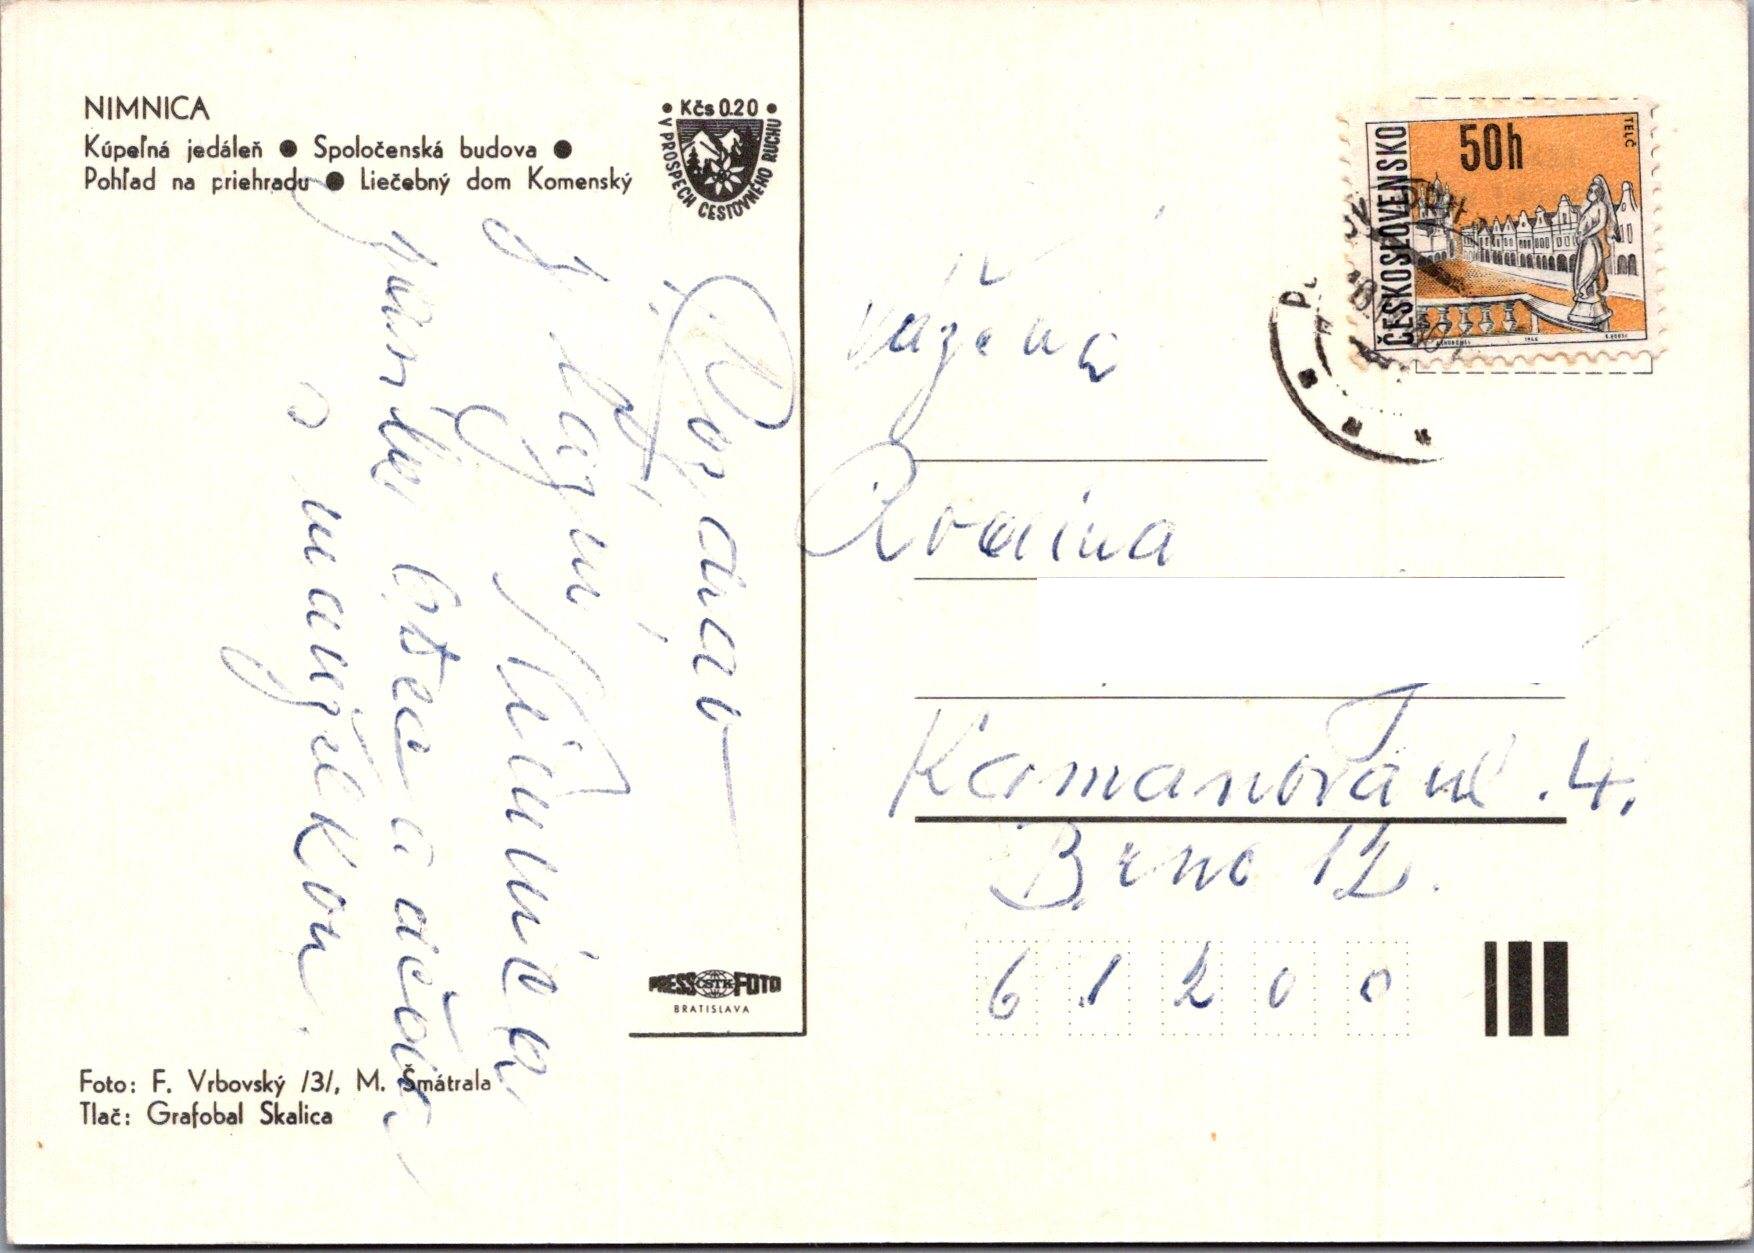 NIMNICA
Kúpeľná jedáleň ● Spoločenská budova ●
Pohľad na priehradu ● Liečebný dom Komenský
• Kčs 0.20 •
V PROSPECH CESTOVNÉHO RUCHU
Pozdrav
z lázní Nimnica
s manželkou.
PRESS ČSTK FOTO
BRATISLAVA
Foto: F. Vrbovský /3/, M. Šmátrala
Tlač: Grafobal Skalica
ČESKOSLOVENSKO
50h
TELČ
Vážená
Rodina
4.
Brno 12.
61200